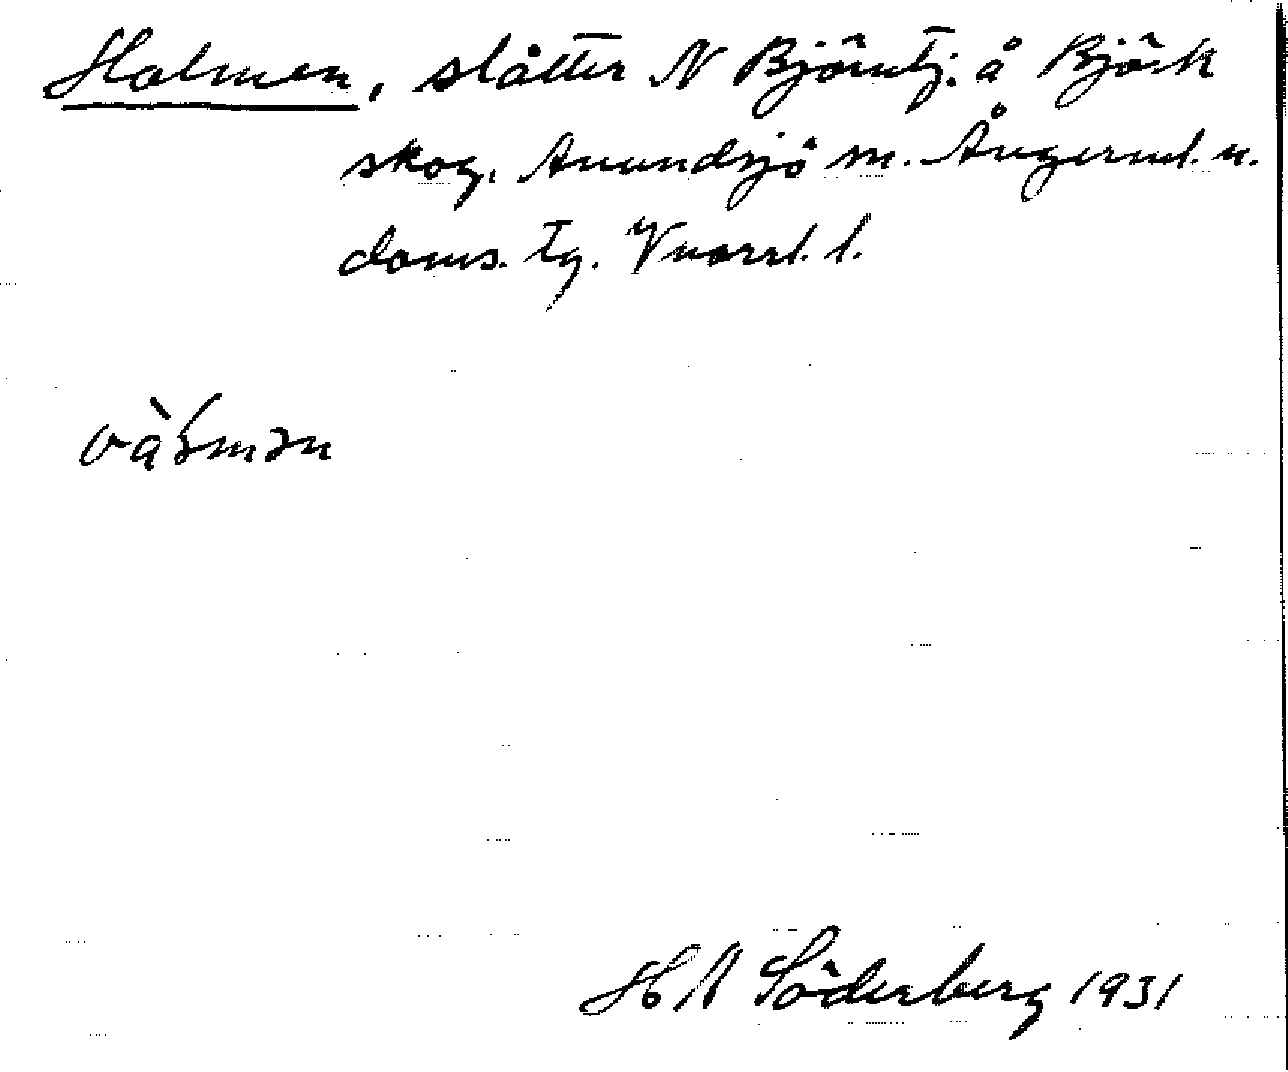 Holmen, slåtter N Björntj. å Björk
skog, Anundsjö sn. Ångerml. n.
doms. tg. Vnorrl. l.
H A Söderberg 1931